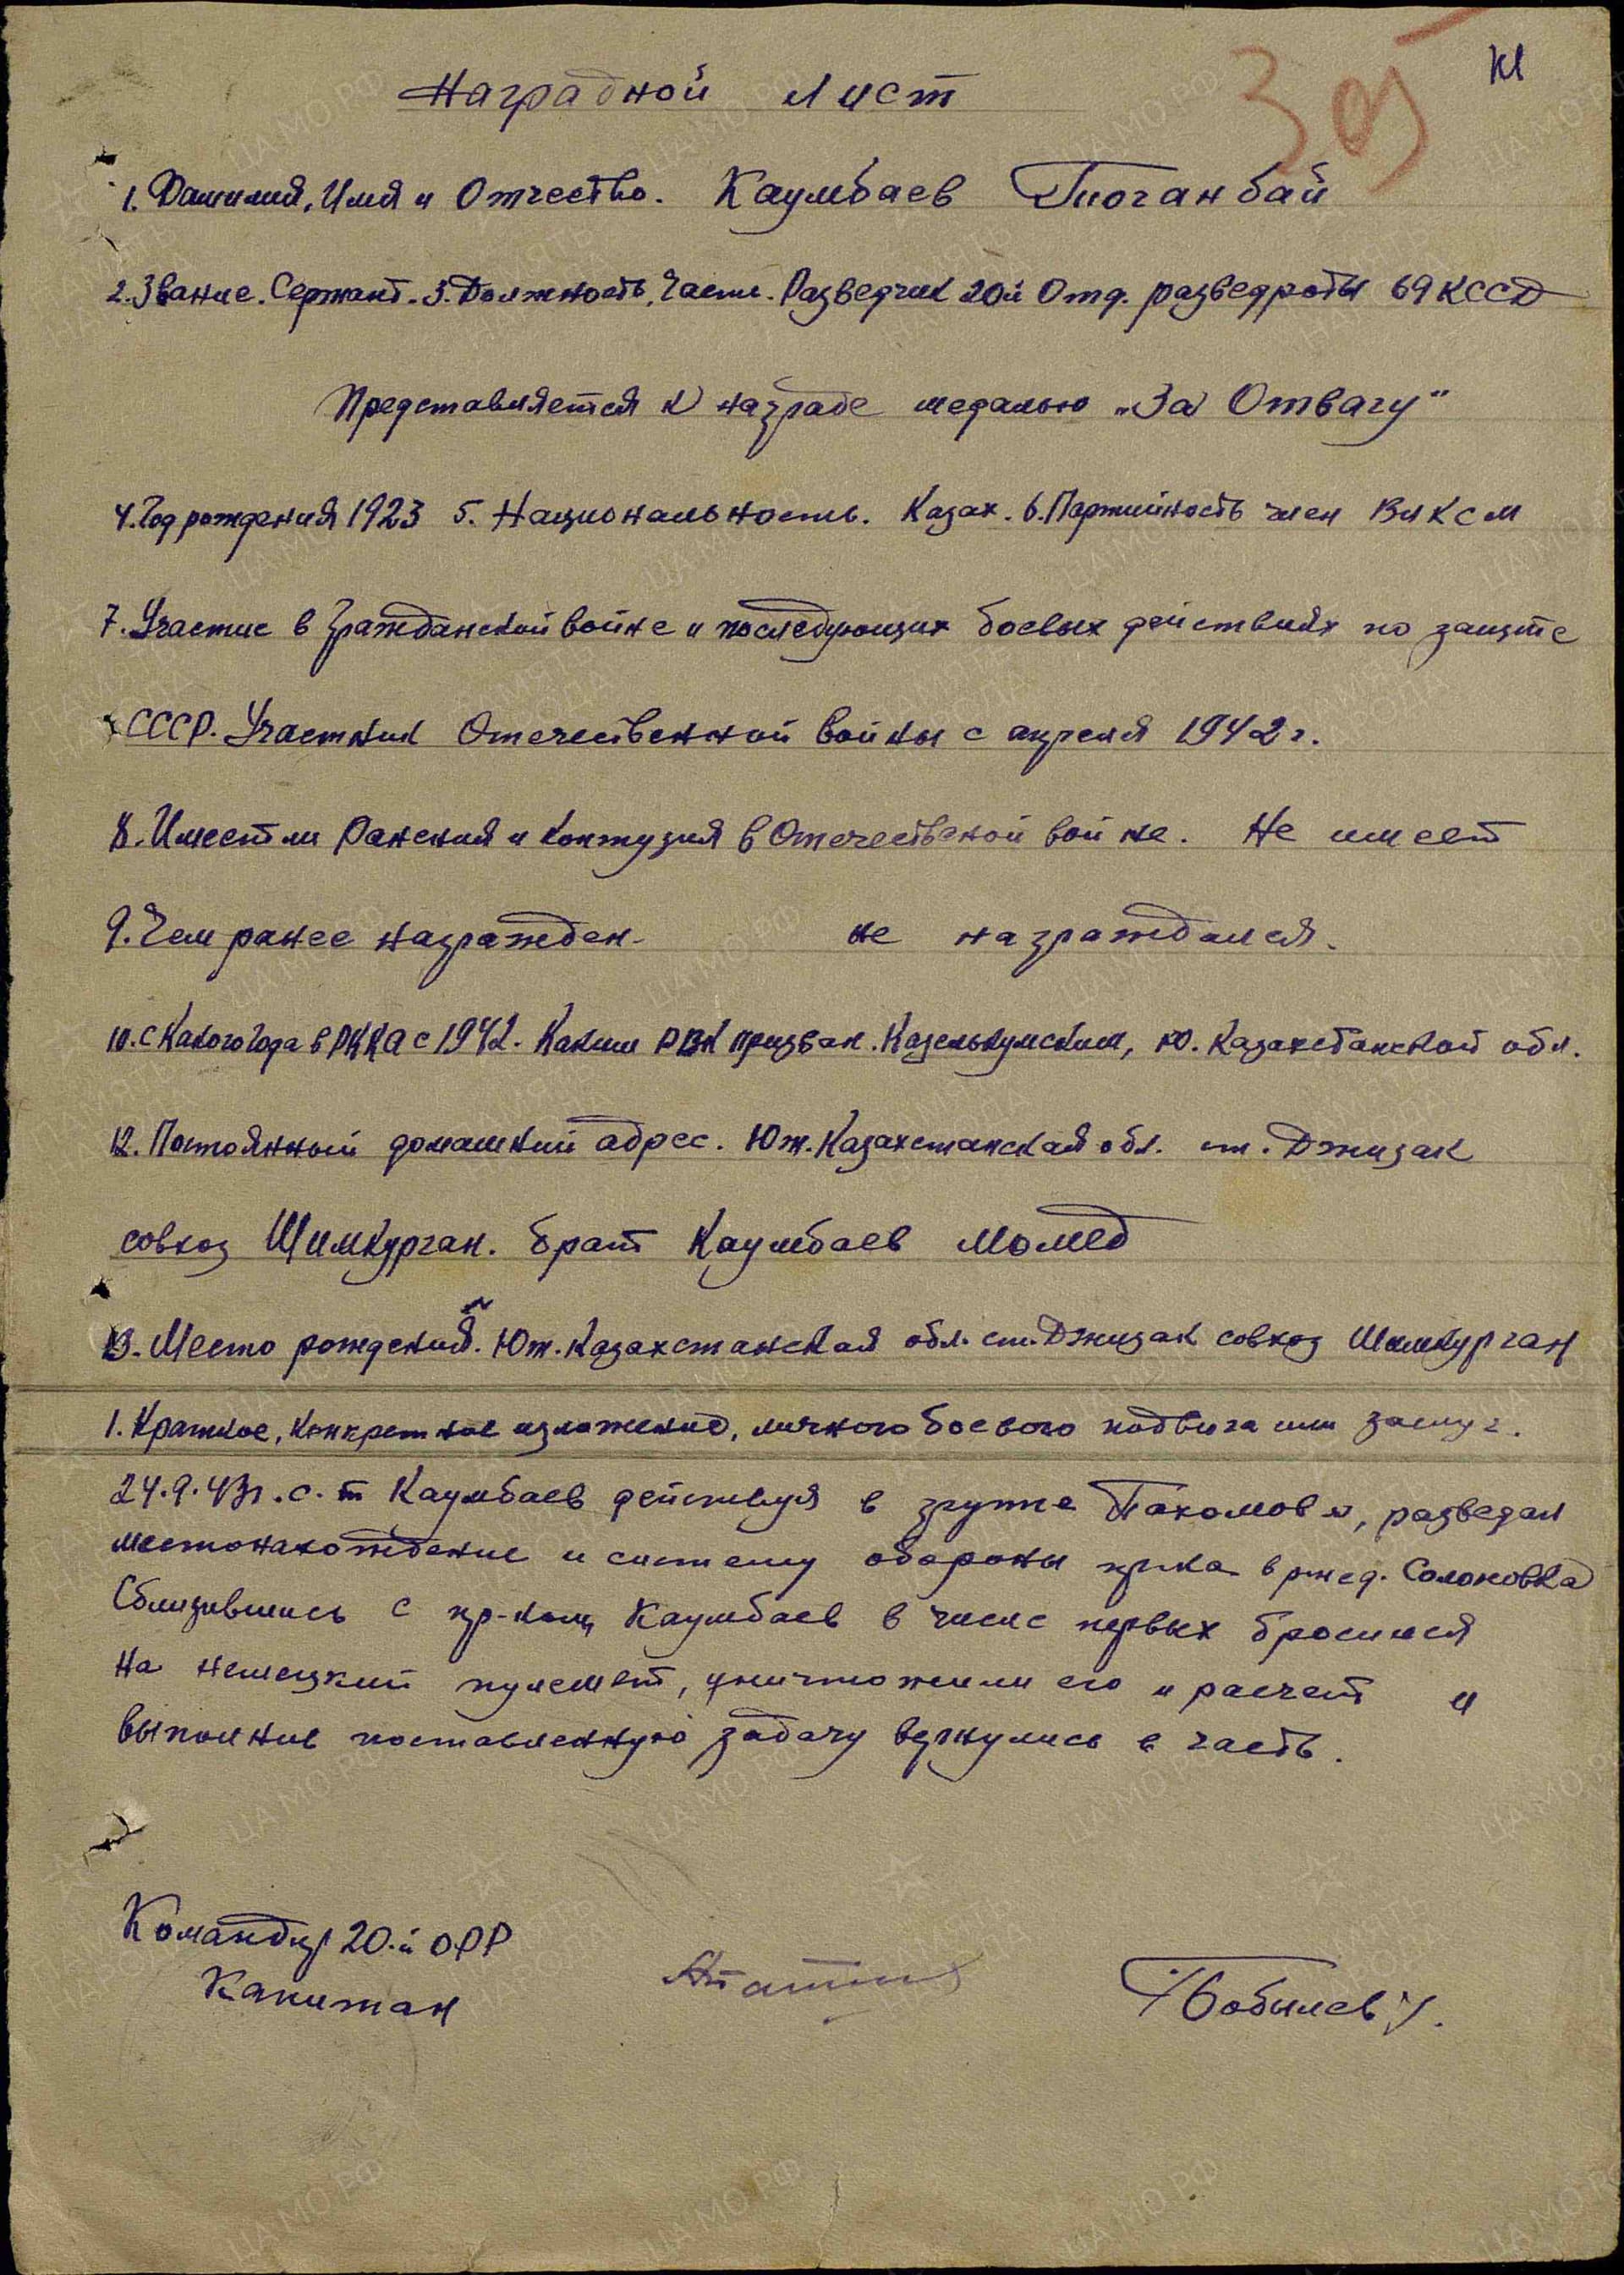 305
Наградной лист
1. Фамилия, Имя и Отчество. Каумбаев Тюганбай
2. Звание. Сержант. 3. Должность, Часть. Разведчик 20й Отд. разведроты 69 КССД
Представляется к награде медалью "За Отвагу"
4. Год рождения 1923 5. Национальность. Казах. 6. Партийность член ВЛКСМ
7. Участие в Гражданской войне и последующих боевых действиях по защите
СССР. Участник Отечественной войны с апреля 1942 г.
8. Имеет ли Ранения и Контузия в Отечественой войне. Не имеет
9. Чем ранее награжден. не награждался.
10. С Какого Года в РККА с 1942. Каким РВК призван. Казелькумским, Ю. Казахстанской обл.
12. Постоянный домашний адрес. Юж. Казахстанская обл. ст. Джизак
совхоз Шимкурган. брат Каумбаев Момед
13. Место рождения. Юж. Казахстанская обл. ст. Джизак совхоз Шимкурган
1. Краткое, Конкретное изложение, личного боевого подвига или заслуг.
24.9.43г. с-т Каумбаев действуя в группе Пахомова, разведал
местонахождение и систему обароны пр-ка в р-не д. Солоновка
Сблизившись с пр-ком, Каумбаев в числе первых бросился
на немецкий пулемет, уничтожили его и расчет и
выполнив поставленную задачу вернулись в часть.
Командир 20-й ОРР
Капитан /Бобылев/.